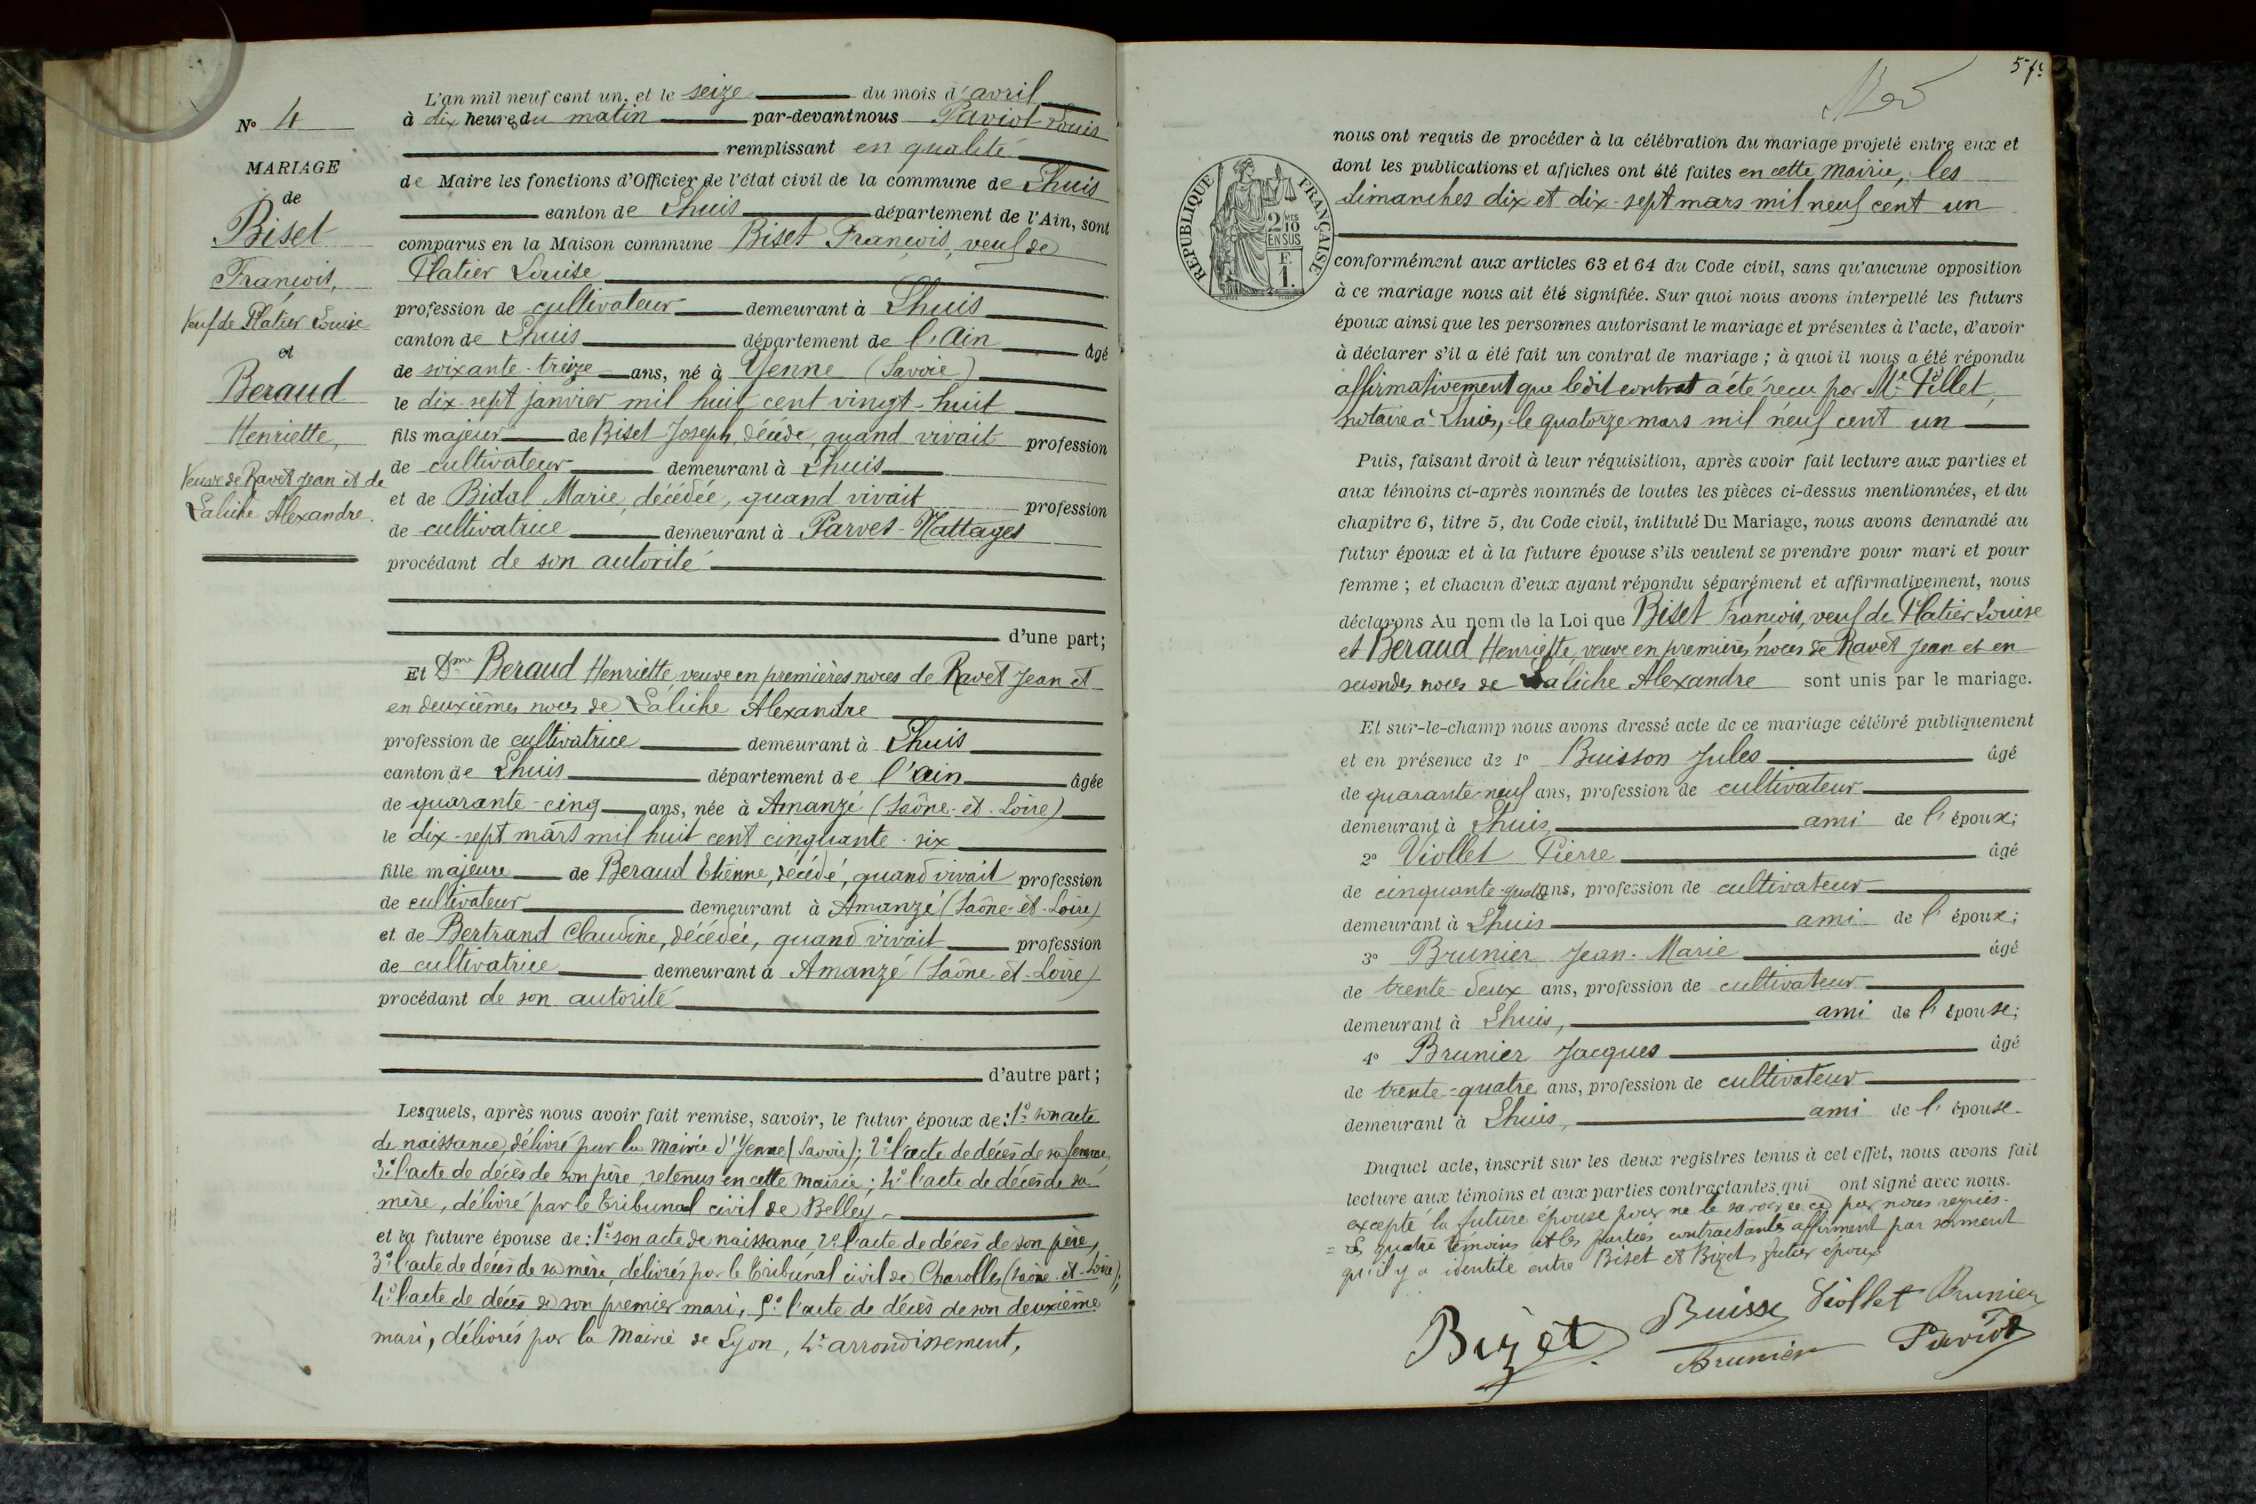 N° 4
MARIAGE
de
Biset
François,
Veuf de Platier Louise
et
Beraud
Henriette,
Veuve de Ravet Jean et de
Laliche Alexandre.
L'an mil neuf cent un, et le seize du mois d'avril
à dix heures du matin par-devant nous Paviot Louis
remplissant en qualité
de Maire les fonctions d'Officier de l'état civil de la commune de Lhuis
canton de Lhuis département de l'Ain, sont
comparus en la Maison commune Biset François, veuf de
Platier Louise
profession de cultivateur demeurant à Lhuis
canton de Lhuis département de l'Ain âgé
de soixante-treize ans, né à Yenne (Savoie)
le dix-sept janvier mil huit cent vingt-huit
fils majeur de Biset Joseph, décédé, quand vivait profession
de cultivateur demeurant à Lhuis
et de Bidal Marie, décédée, quand vivait profession
de cultivatrice demeurant à Parves-Nattages
procédant de son autorité
d'une part;
Et Dme Beraud Henriette, veuve en premières noces de Ravet Jean et
en deuxièmes noces de Laliche Alexandre
profession de cultivatrice demeurant à Lhuis
canton de Lhuis département de l'Ain âgée
de quarante-cinq ans, née à Amanzé (Saône-et-Loire)
le dix-sept mars mil huit cent cinquante-six
fille majeure de Beraud Etienne, décédé, quand vivait profession
de cultivateur demeurant à Amanzé (Saône-et-Loire)
et de Bertrand Claudine, décédée, quand vivait profession
de cultivatrice demeurant à Amanzé (Saône-et-Loire)
procédant de son autorité
d'autre part;
Lesquels, après nous avoir fait remise, savoir, le futur époux de: 1° son acte
de naissance, délivré par la Mairie d'Yenne (Savoie); 2° l'acte de décès de sa femme,
3° l'acte de décès de son père, retenus en cette mairie; 4° l'acte de décès de sa
mère, délivré par le Tribunal civil de Belley.
et la future épouse de: 1° son acte de naissance, 2° l'acte de décès de son père,
3° l'acte de décès de sa mère, délivrés par le Tribunal civil de Charolles (Saône-et-Loire);
4° l'acte de décès de son premier mari, 5° l'acte de décès de son deuxième
mari, délivrés par la Mairie de Lyon, 4e arrondissement,
RÉPUBLIQUE FRANÇAISE
2 MES
10
EN SUS
F.
1.
nous ont requis de procéder à la célébration du mariage projeté entre eux et
dont les publications et affiches ont été faites en cette mairie, les
dimanches dix et dix-sept mars mil neuf cent un
conformément aux articles 63 et 64 du Code civil, sans qu'aucune opposition
à ce mariage nous ait été signifiée. Sur quoi nous avons interpellé les futurs
époux ainsi que les personnes autorisant le mariage et présentes à l'acte, d'avoir
à déclarer s'il a été fait un contrat de mariage; à quoi il nous a été répondu
affirmativement que ledit contrat a été reçu par Me Pillet,
notaire à Lhuis, le quatorze mars mil neuf cent un
Puis, faisant droit à leur réquisition, après avoir fait lecture aux parties et
aux témoins ci-après nommés de toutes les pièces ci-dessus mentionnées, et du
chapitre 6, titre 5, du Code civil, intitulé Du Mariage, nous avons demandé au
futur époux et à la future épouse s'ils veulent se prendre pour mari et pour
femme; et chacun d'eux ayant répondu séparément et affirmativement, nous
déclarons Au nom de la Loi que Biset François, veuf de Platier Louise
et Beraud Henriette, veuve en premières noces de Ravet Jean et en
secondes noces de Laliche Alexandre sont unis par le mariage.
Et sur-le-champ nous avons dressé acte de ce mariage célébré publiquement
et en présence de 1° Buisson Jules âgé
de quarante-neuf ans, profession de cultivateur
demeurant à Lhuis, ami de l'époux;
2° Viollet Pierre âgé
de cinquante-quatre ans, profession de cultivateur
demeurant à Lhuis ami de l'époux;
3° Brunier Jean-Marie âgé
de trente-deux ans, profession de cultivateur
demeurant à Lhuis, ami de l'épouse;
4° Brunier Jacques âgé
de trente-quatre ans, profession de cultivateur
demeurant à Lhuis, ami de l'épouse.
Duquel acte, inscrit sur les deux registres tenus à cet effet, nous avons fait
lecture aux témoins et aux parties contractantes qui ont signé avec nous.
excepté la future épouse pour ne le savoir de ce par nous requis.
= Les quatre témoins et les parties contractantes affirment par serment
qu'il y a identité entre Biset et Bizet, futur époux
Bizet Buisson Viollet Brunier
Brunier Paviot